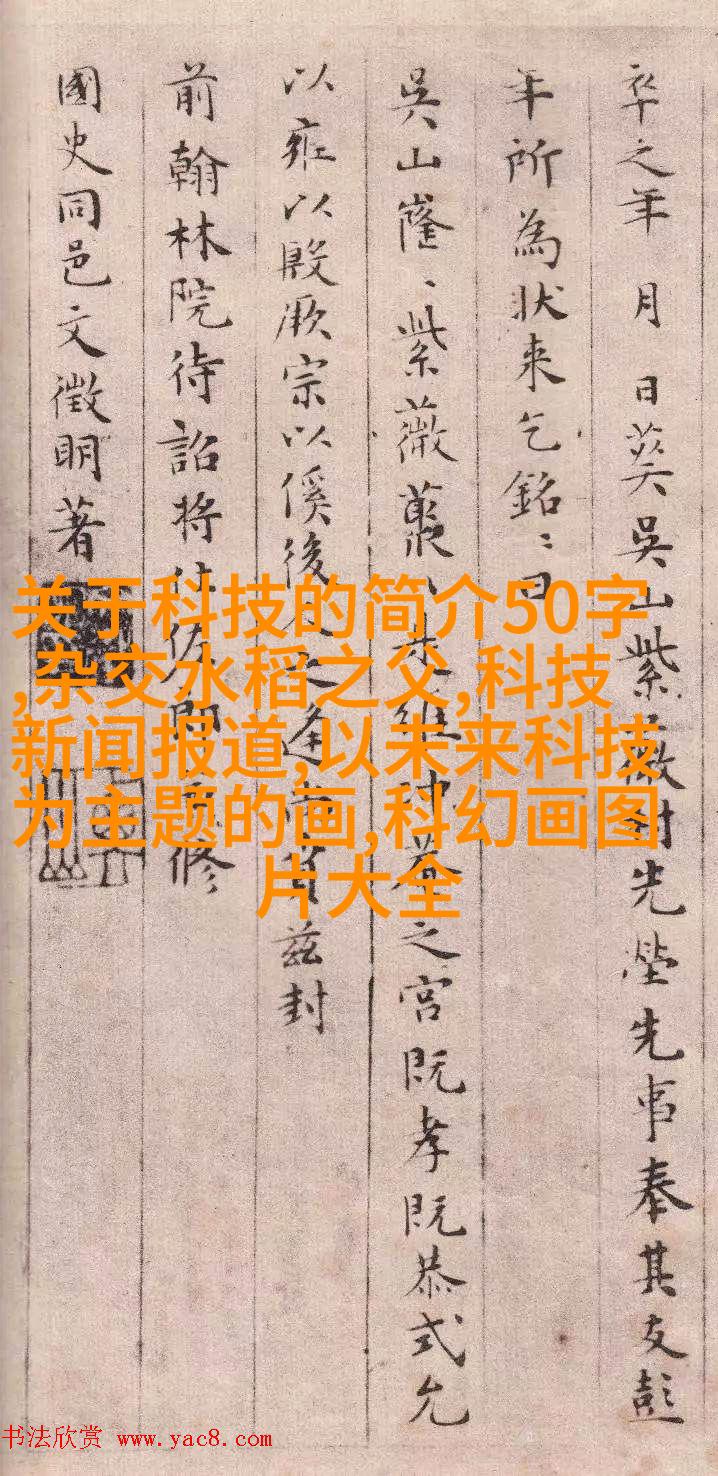 卒之年 月 日葬吳山紫薇村先塋先事奉其友彭
年所為狀来乞銘〻曰
吳山窿〻紫薇叢 之宮既孝既恭式允
以雍以殷厥宗以傒後 之逢 茲封
前翰林院待詔將仕佐郎 修
國史同邑文徵明著
关于科技的简介50字
,杂交水稻之父,科技
新闻报道,以未来科技
为主题的画,科幻画图
片大全
书法欣赏 www.yac8.com